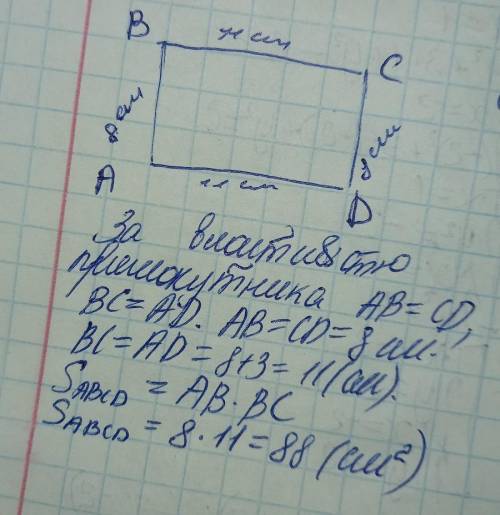 B 11 см C
8 см 8 см
A 11 см D
За властивістю
прямокутника AB = CD,
BC = AD. AB = CD = 8 см.
BC = AD = 8+3 = 11 (см).
S ABCD = AB · BC
S ABCD = 8 · 11 = 88 (см²)